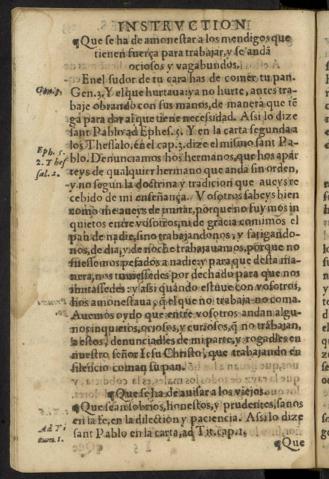 INSTRVCTION
¶Que se ha de amonestar a los mendigos que
tienen fuerça para trabajar, y se andã
ociosos y vagabundos.
En el sudor de tu cara has de comer tu pan.
Gen. 3. Y el que hurtaua: ya no hurte, antes tra-
baje obrando con sus manos, de manera que tẽ
ga para dar al que tiene necessidad. Assi lo dize
sant Pablo ad Ephes. 5. Y en la carta segunda a
los Thessalo. en el cap. 3. dize el mismo sant Pa
blo. Denunciamos hos hermanos, que hos apar
teys de qualquier hermano que anda sin orden,
y no segun la doctrina y tradicion que aueys re
cebido de mi enseñança. Vosotros sabeys bien
como me aueys de imitar, porque no fuymos in
quietos entre vosotros, ni de gracia comimos el
pan de nadie, sino trabajandonos, y fatigando-
nos, de dia, y de noche trabajauamos, porque no
fuessemos pesados a nadie: y para que desta ma
nera, nos tuuiessedes por dechado para que nos
imitassedes: y assi quando estuue con vosotros,
hos amonestaua, q̃ el que no trabaja no coma.
Auemos oydo que entre vosotros andan algu-
nos inquietos, ociosos, y curiosos, q̃ no trabajan,
a estos, denunciadles de mi parte, y rogadles en
nuestro señor Iesu Christo, que trabajando en
silencio coman su pan.
¶Que se ha de auisar a los viejos.
¶Que sean sobrios, honestos, y prudentes, sanos
en la fe, en la dilection y paciencia. Assi lo dize
sant Pablo en la carta, ad Tit. cap. 2.
¶Que
Gen. 3.
Ephe. 5.
2. Thes
sal. 2.
Ad Ti
tum. 1.